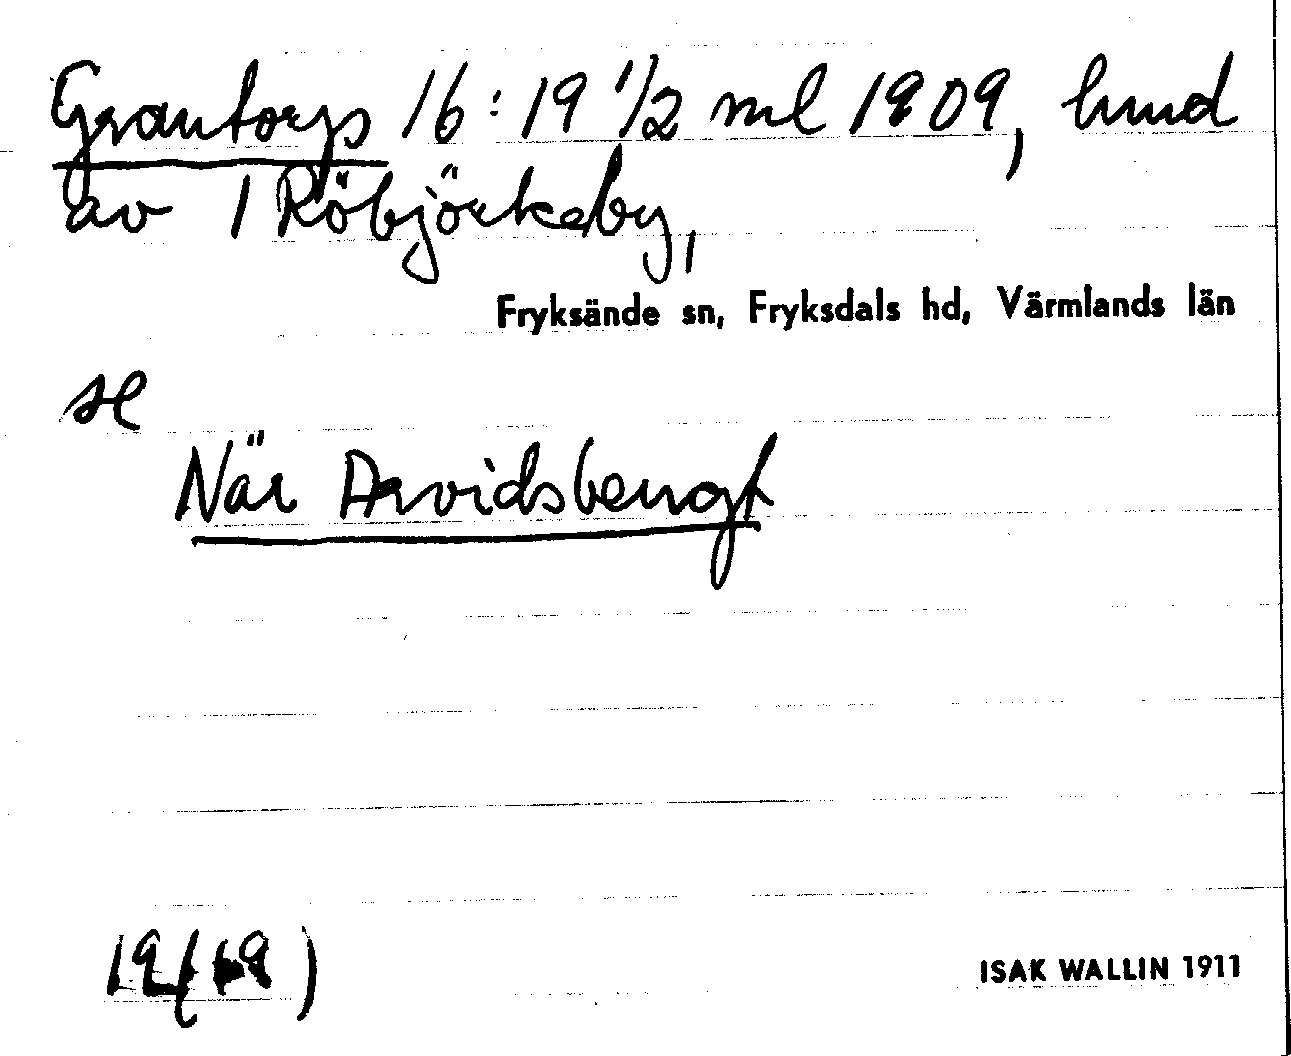 Grantorp 16:19 1/2 ml 1909, hmd
av 1 Röbjörkeby,
Fryksände sn, Fryksdals hd, Värmlands län
se
När Arvidsbengt
ISAK WALLIN 1911